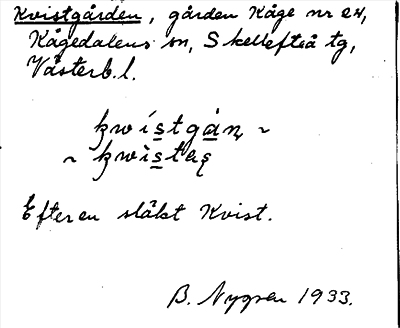 Kvistgården, gården Kåge nr 24,
Kågedalens sn, Skellefteå tg,
Västerb. l.
Efter en släkt Kvist.
B. Nygren 1933.